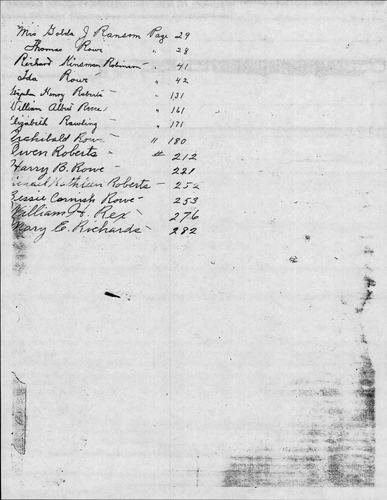 Mrs Golda J Ransom Page 29
Thomas Rowe " 38
Richard Kinsman Robinson " 41
Ida Rowe " 42
Stephen Henry Roberts " 131
William Albert " 161
Elizabeth Rawling " 171
Archibald Rowe " 180
Owen Roberts - # 212
Harry B. Rowe - 221
Kathleen Roberts - 252
Bessie Cornish Rowe - 253
William H. Rex - 276
Mary E. Richards - 282